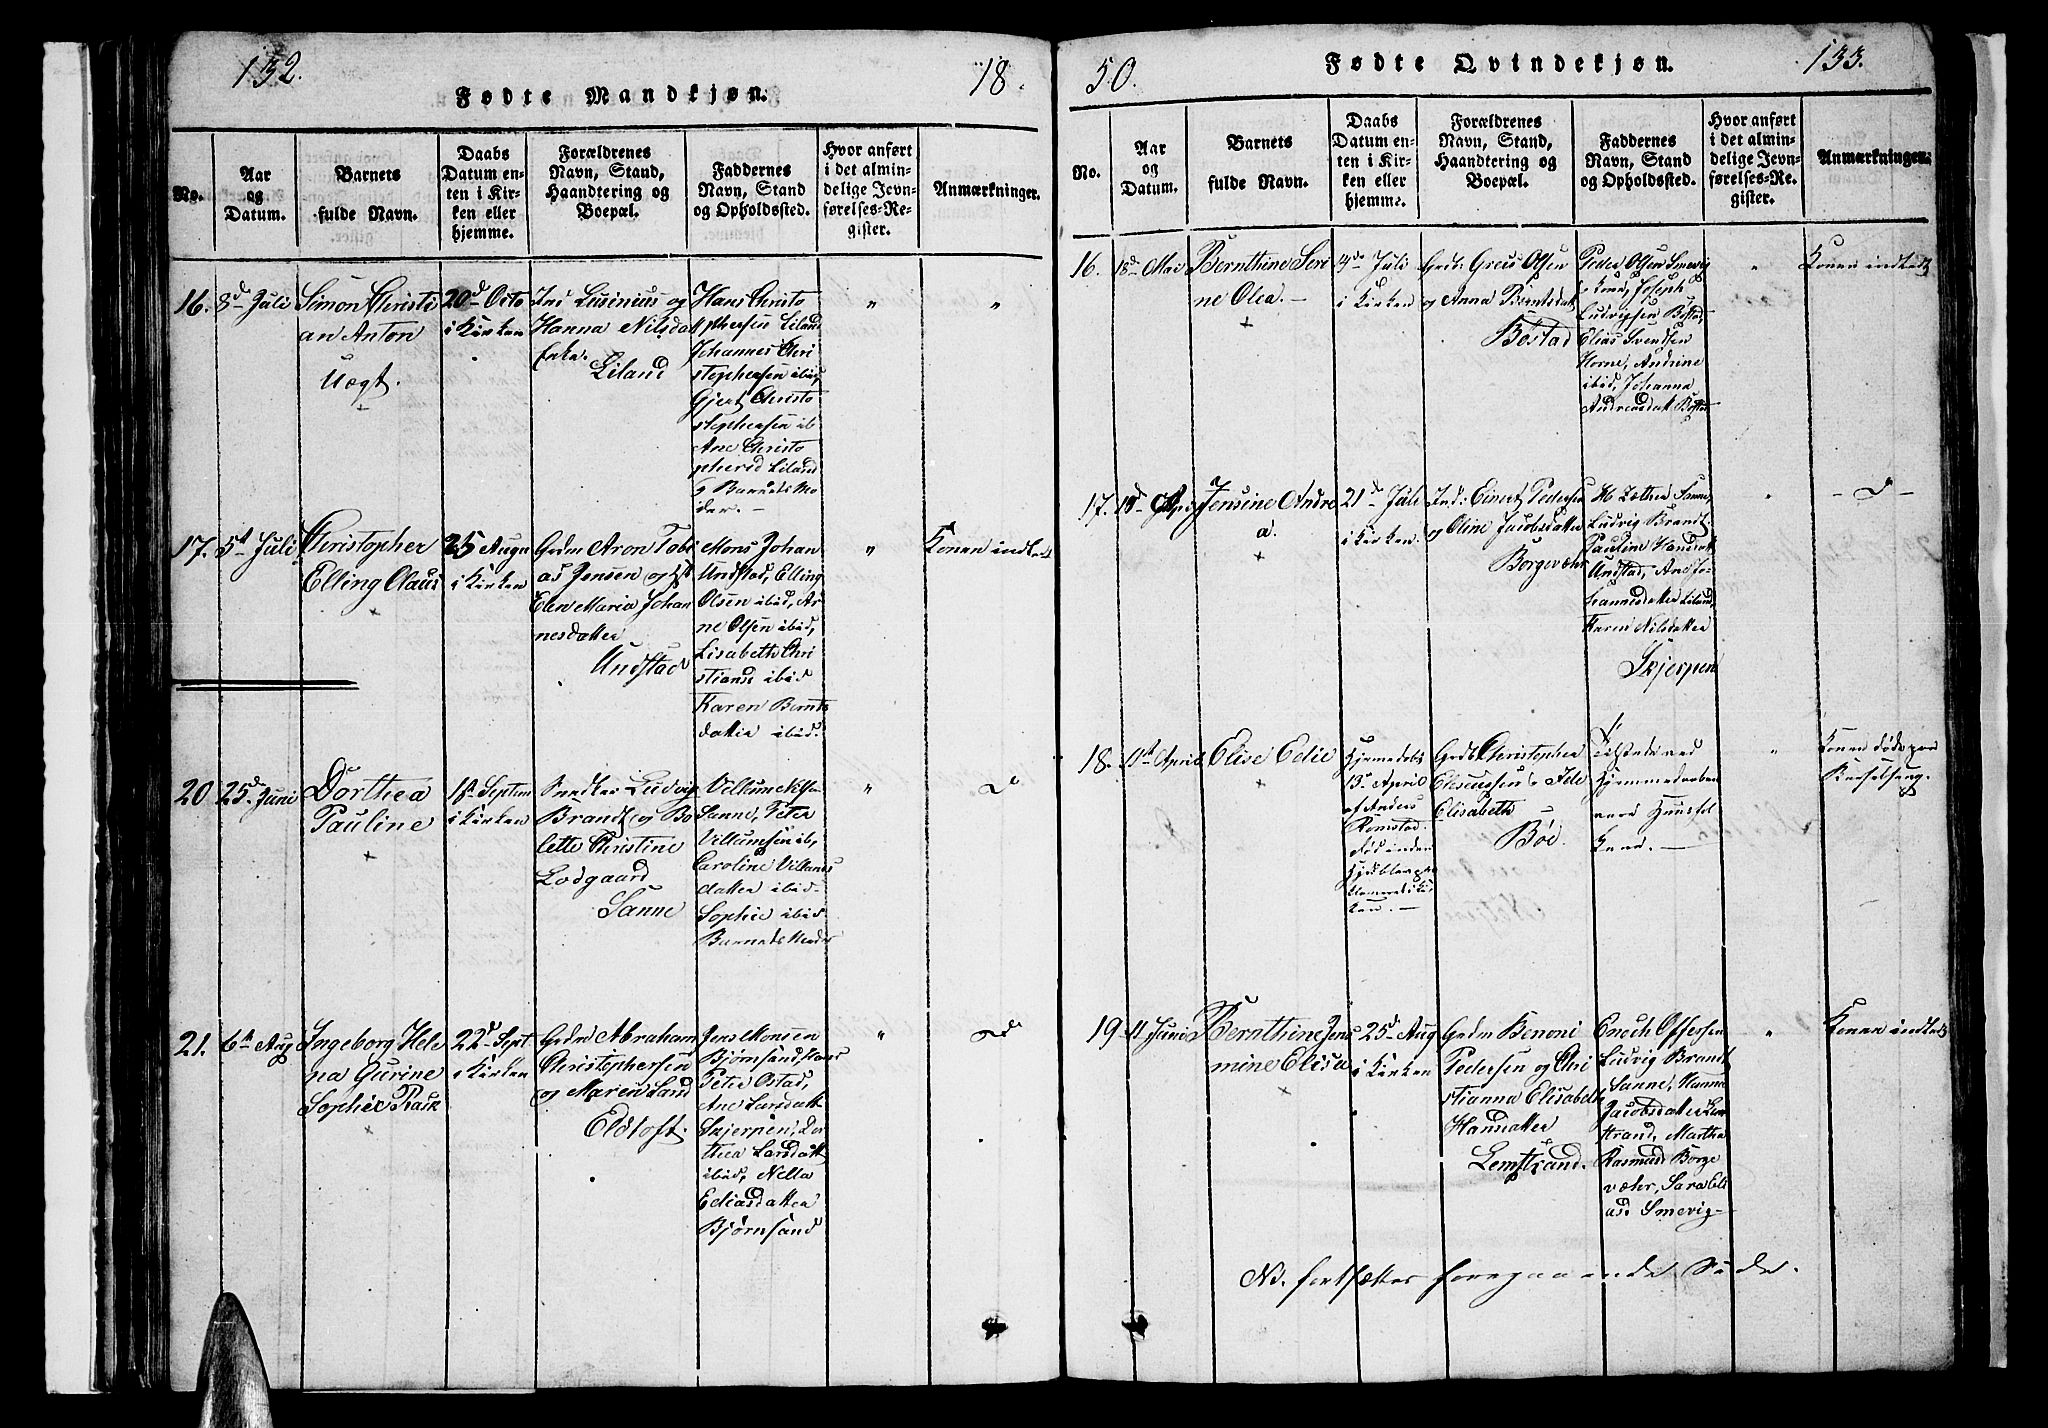 132.
Fødte Mandkjøn.
18.
No.
Aar
og
Datum.
Barnets
fulde Navn.
Daabs
Datum en-
ten i Kir-
ken eller
hjemme.
Forældrenes
Navn, Stand,
Haandtering og
Boepæl.
Faddernes
Navn, Stand
og Opholdssted.
Hvor anført
i det almin-
delige Jevn-
førelses-Re-
gister.
Anmærkninger.
16.
8d Juli
Simon Christi
an Anton
Uægt.
20d Octo
i Kirken
Inds Lusinius og
Hanna Nilsdatt
Enke.
Liland
Hans Christo
phersen Liland
Johannes Chri
stophersen ibid,
Gjert Christo
stophersen ib
Ane Christo
phersd Liland
g Barnets Mo
der. —
"
"
17.
5t Juli
Christopher
Elling Olaus
25 Augu
i Kirken
Grdm Aron Tobi
as Jensen og
Elen Maria Johan
nesdatter
Undstad
Mons Johan
Undstad, Elling
Olsen ibid, Ar
ne Olsen ibid,
Lisabeth Chri
stiansd ibid
Karen Bernts
datter ibid.
"
Konen indleds
20
25d Juni
Dorthea
Pauline
18 Septem
i Kirken
Snedker Ludvig
Brandt og Bo
lette Christine
Lodgaard
Sanne
Villum Nilsen
Sanne, Peter
Villumsen ib,
Caroline Villums
datter ibid.
Sophie ibid.
Barnets Moder
"
— d
21.
6t Aug
Ingeborg Hele
na Gurine
Sophie Rask
22d Sept
i Kirken
Grdm Abraham
Christophersen
og Maren Land
Eldtoft.
Jens Monsen
Bjørnsand, Hans
Peter Ostad,
Ane Larsdatt
Skjerpen, Dor
thea Larsdatt
ibid, Nella
Eliasdatter
Bjørnsand
"
— d
50.
Fødte Qvindekjøn.
133.
No.
Aar
og
Datum.
Barnets
fulde Navn.
Daabs
Datum en-
ten i Kir-
ken eller
hjemme.
Forældrenes
Navn, Stand,
Haandtering og
Boepæl.
Faddernes
Navn, Stand
og Opholdssted.
Hvor anført
i det almin-
delige Jevn-
førelses-Re-
gister.
Anmærkninger.
16.
18d Mai
Bernthine Seri
ne Olea. —
Juli
i Kirken
Grdb. Greis Olsen
og Anna Berntsdatt
Böstad
Peder Olsen Smevig
g Kone, Joseph
Ludvigsen Böstad,
Elias Svendsen
Horne, Andrine
ibid, Johanna
Andreasdatt Böstad
"
Konen indleds
17.
18d
Jensine Andre
a.
21d Juli
i Kirken.
Inds: Einert Pedersen
og Oline Jacobsdatter
Borgevæhr
Sanne,
Ludvig Brandt.
Pauline Hansdatt
Undstad, Ane Jo-
hannesdatter Liland,
Karen Nilsdatter
Skjerpen
"
— d —
18.
11t April
Elise Edie
Hjemmedöbt
13d April
af Anders
Remstad.
Grdb Christopher
Elisæussen g Idle
Elisabeth
Böe.
Tilstede ved
Hjemmedaaben
vare Huusfol
kene. —
"
Konen döde paa
Barselseng.
19
11 Juni
Bernthine Jens
mine Elisa
25d Aug
i Kirken
Grdm Benoni
Pedersen og Chri
stianna Elisabeth
Hansdatter
Lemstrand.
Enoch Offersen
Ludvig Brandt
Sanne, Hanna
Jacobsdatter Lem
strand, Martha
Rasmusd Borge
væhr, Sara Eli
asd. Smevig —
"
Konen indleds
NB. fortsættes foregaaende Side.